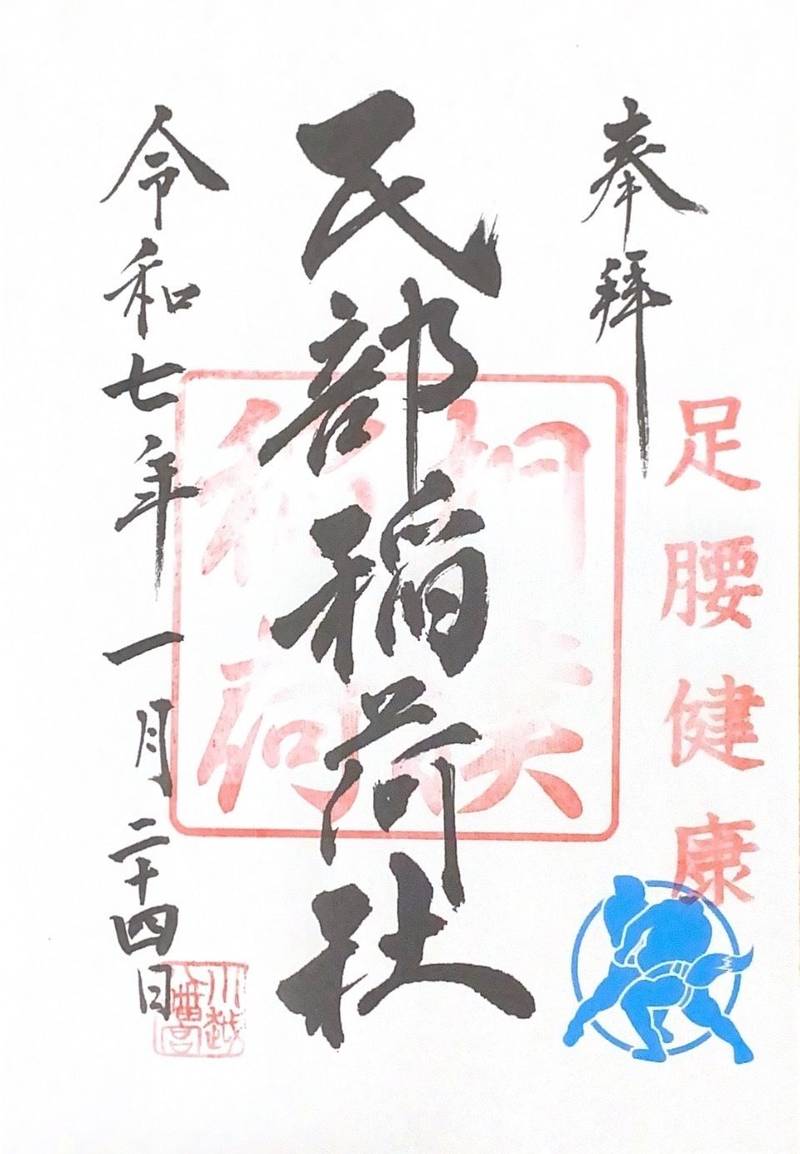 奉拝
足腰健康
民部稲荷社
稲荷
令和七年一月二十四日
川越
八幡宮